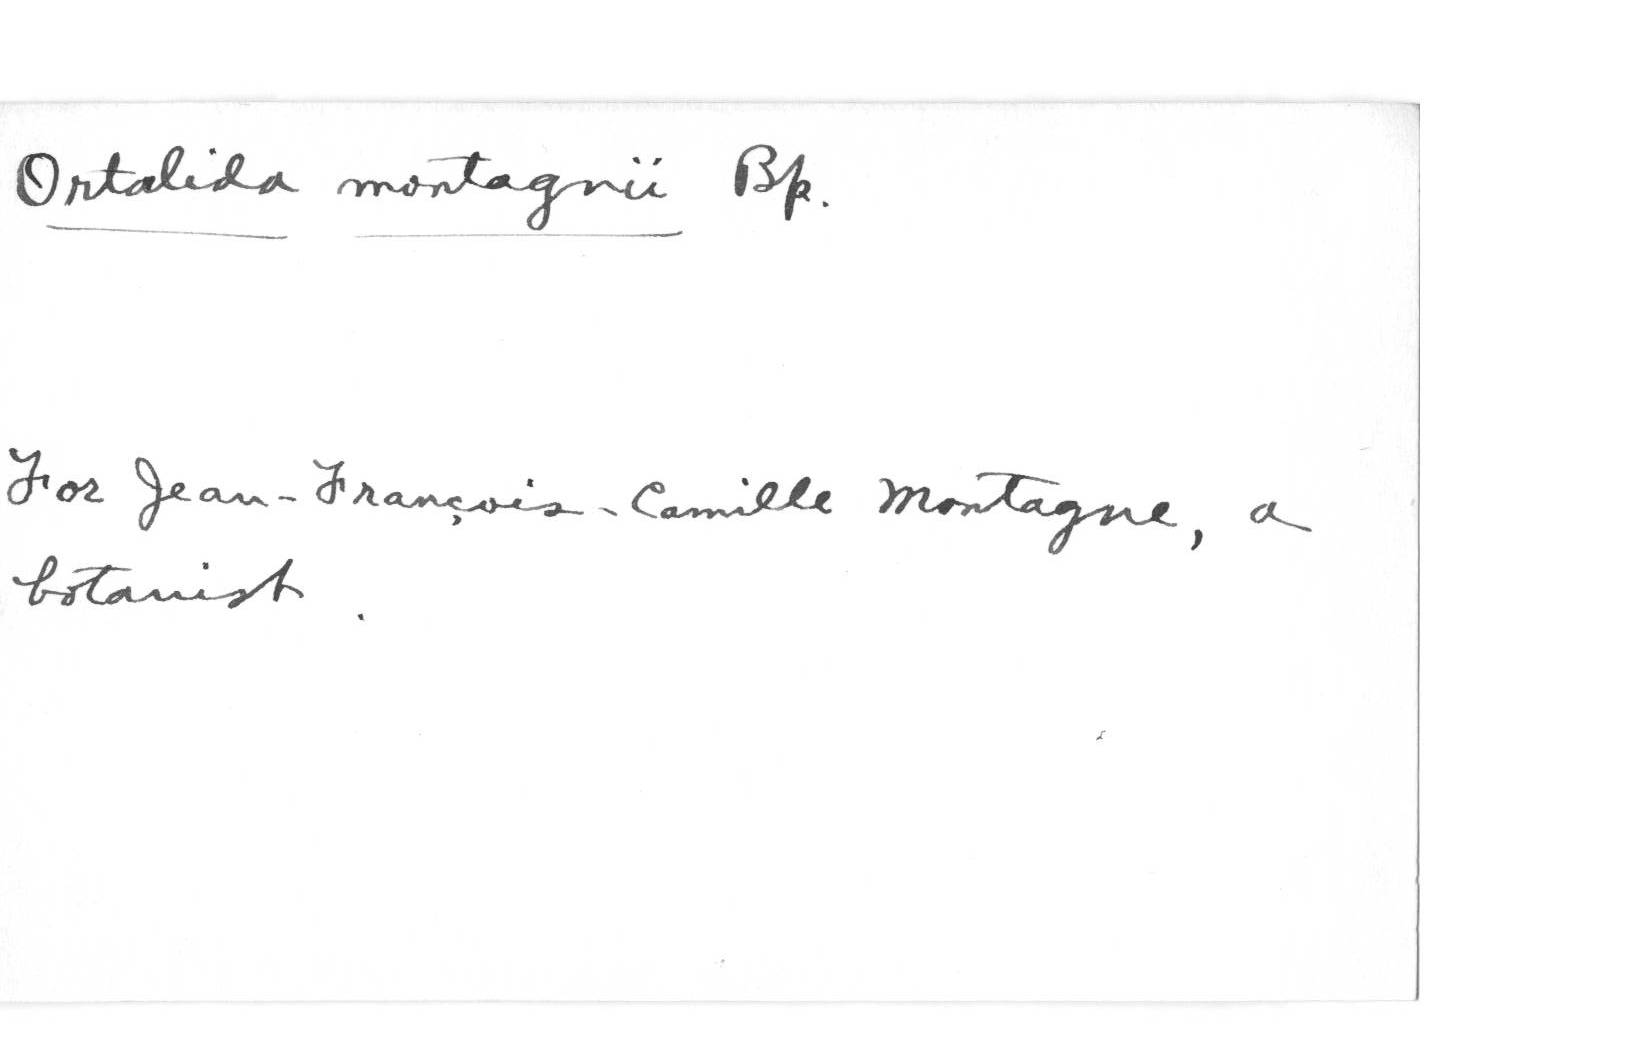 Ortalida montagnii Bp.
For Jean-François-Camille Montagne, a
botanist.